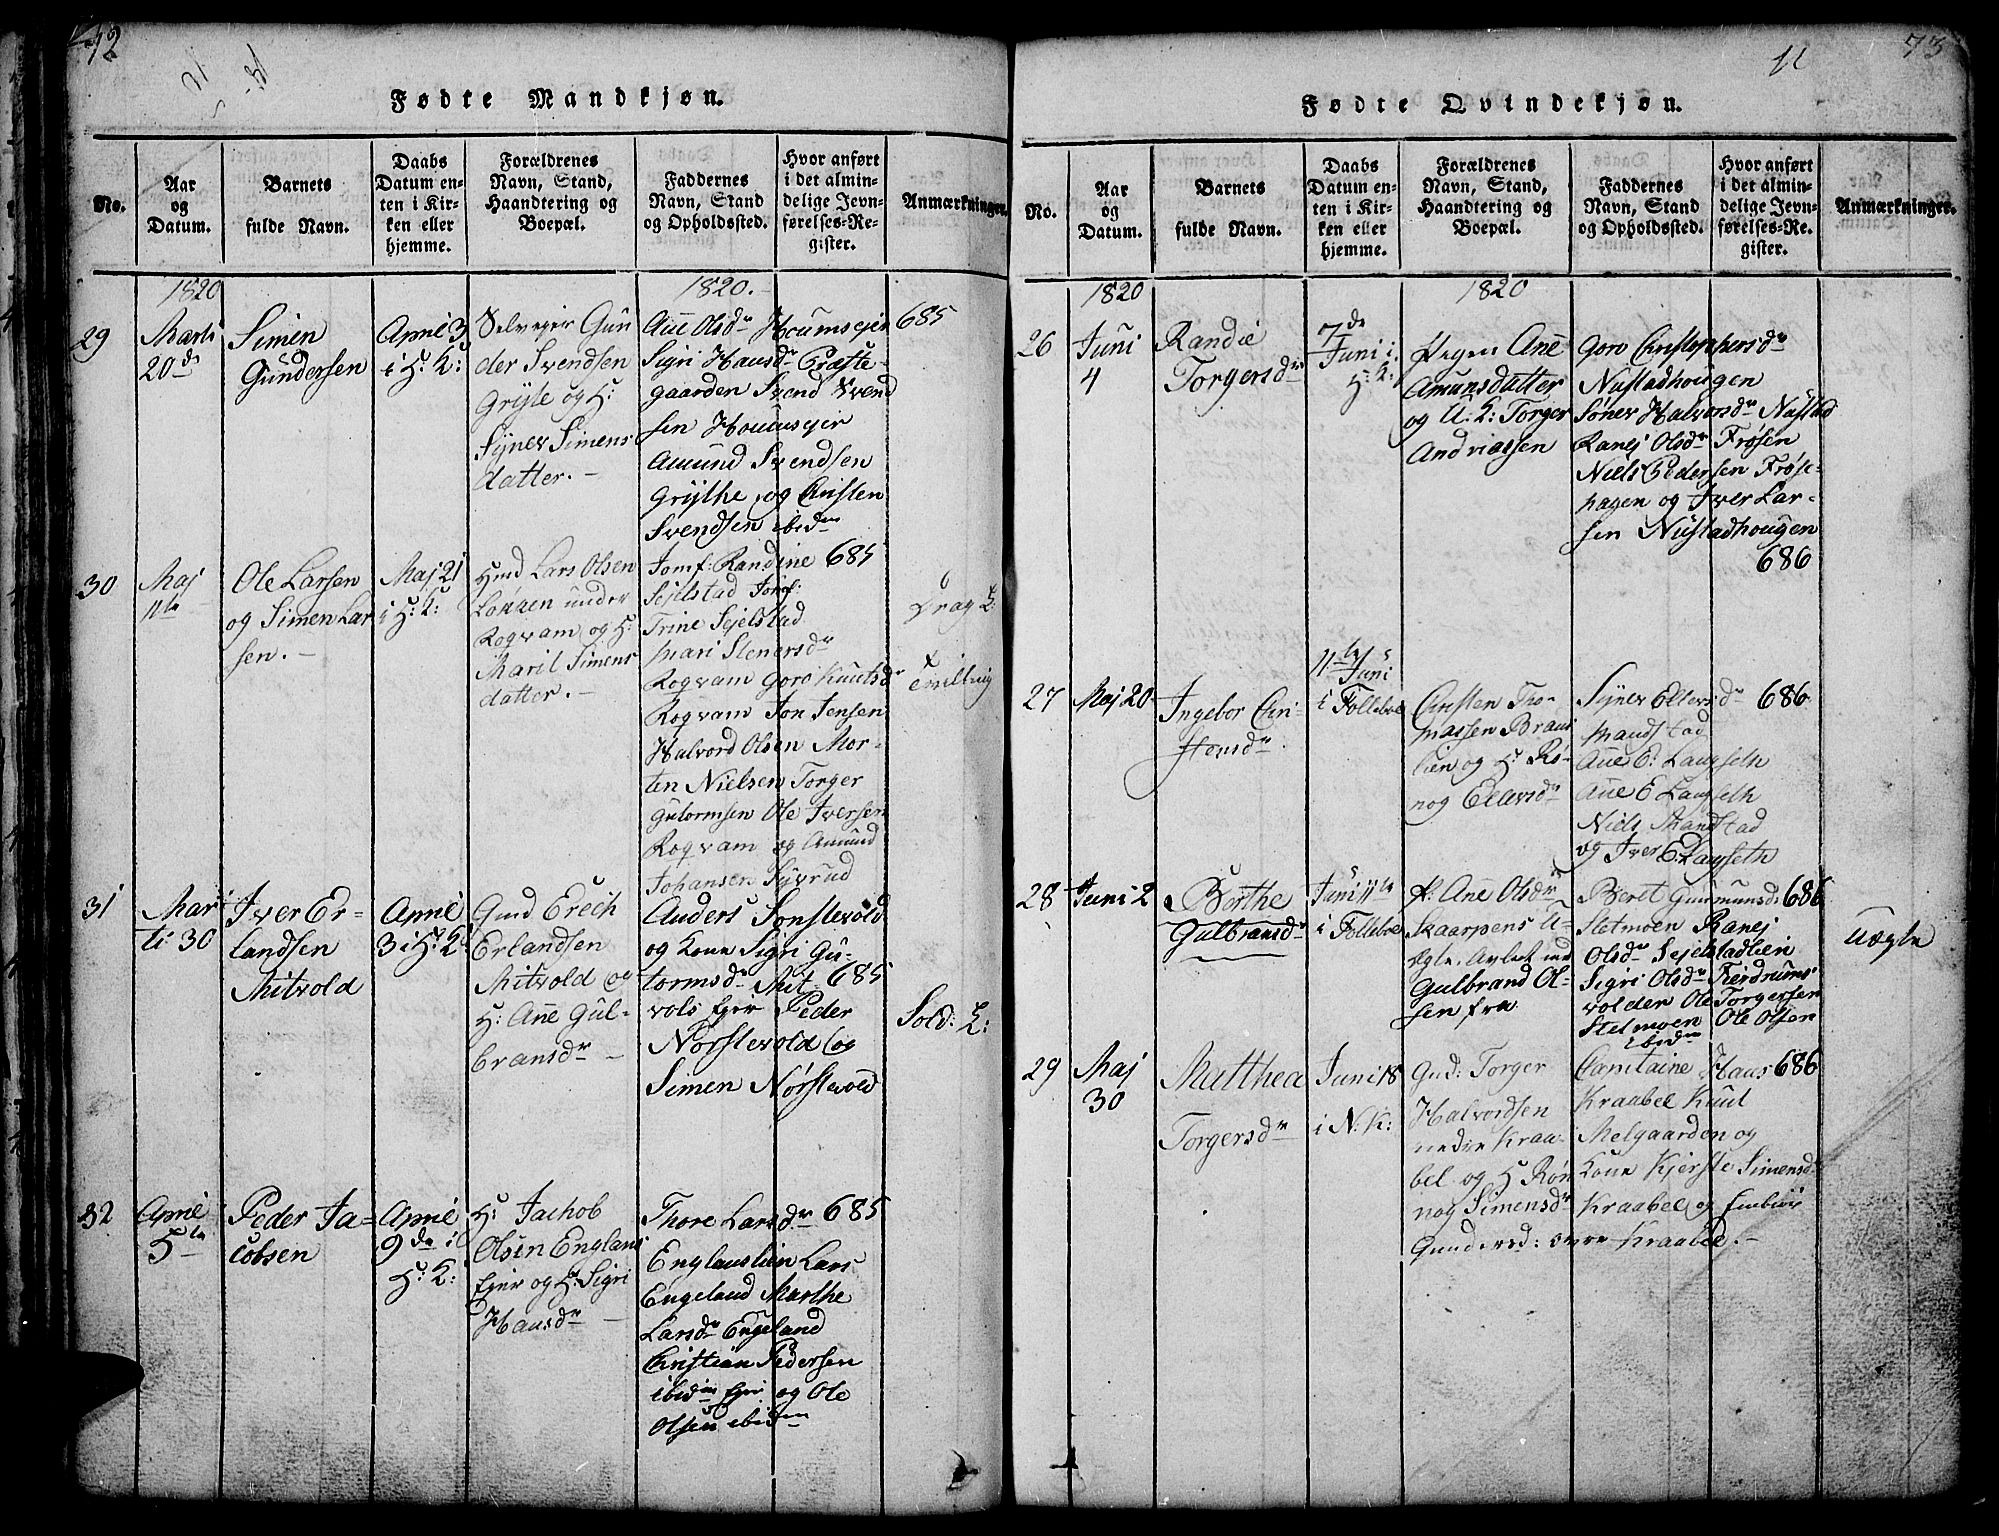 72
Fødte Mandkjøn.
No.
Aar
og
Datum.
Barnets
fulde Navn.
Daabs
Datum en-
ten i Kir-
ken eller
hjemme.
Forældrenes
Navn, Stand,
Haandtering og
Boepæl.
Faddernes
Navn, Stand
og Opholdssted.
Hvor anført
i det almin-
delige Jevn-
førelses-Re-
gister.
Anmærkninger.
1820
1820.
29
Marti
20de
Simen
Gundersen
April 3
i H: K:
Selvejer Gun
der Svendsen
Grijte og H:
Sÿnev Simens
datter. –
Ane Olsdr Houmsejer
Sigri Hansdr Præste-
gaarden Svend Svend
sen Houmsejer
Amund Svendsen
Grijthe og Christen
Svendsen ibidm
685
30
Maj
11te
Ole Larsen
og Simen Lar
sen. –
Maj 21
i H: K:
Hmd Lars Olsen
Løkken under
Rogvam og H:
Maril Simens
datter. –
Jomf: Randine
Sejelstad Jomf:
Trine Sejelstad
Mari Stenersdr
Rogvam Goro Knutsdr
Rogvam Jon Jensen
Halvord Olsen Mor-
ten Nielsen Torger
Gutormsen Ole Iversen
Rogvam og Amund
Johansen Syvrud
685
Drag K:
Tvilling
31
Mar
ti 30
Iver Er-
landsen
Mitvold
April
3 i H: K:
Gmd Erech
Erlandsen
Mitvold og
H: Ane Gul-
bransdr –
Anders Sonstevold
og Kone Sigri Gu-
tormsdr Mit-
vols Ejer Peder
Norstevold og
Simen Nørstevold
685
Sold: K:
32
April
5te
Peder Ja-
cobsen
April
9de i
H: K:
H: Jachob
Olsen Englans
Ejer og H: Sigri
Hansdr –
Thore Larsdr
Englanslien Lars
Engeland Marthe
Larsdr Engeland
Christian Pedersen
ibidm Ejer og Ole
Olsen ibidm
685
11
73
Fødte Qvindekjøn.
No.
Aar
og
Datum.
Barnets
fulde Navn.
Daabs
Datum en-
ten i Kir-
ken eller
hjemme.
Forældrenes
Navn, Stand,
Haandtering og
Boepæl.
Faddernes
Navn, Stand
og Opholdssted.
Hvor anført
i det almin-
delige Jevn-
førelses-Re-
gister.
Anmærkninger.
1820
1820
26
Juni
4
Randie
Torgersdr
7de
Juni i
H: K:
Pigen Ane
Amunsdatter
og U: K: Torger
Andriassen
Goro Christophersdr
Nustadhougen
Sønev Halvorsdr Nustad
Ranej Olsdr Frøsen
Niels Pedersen Frøse-
hagen og Iver Lar-
sen Nustadhougen
686
27
Maj 20
Ingebor Chri-
stensdr
11te
Juni
i Folleboe
Christen Tho-
massen Braus
lien og H: Rø-
nog Ellevsdr
Sÿnev Ellevsdr
Mandstad
Ane E: Langseth
Ane E Langseth
Niels Mandstad
og Iver E: Langseth
686
28
Juni 2
Berthe
Gulbransdr
Juni 11te
i Folleboe
P: Ane Olsdr
Skaarpens U-
ægte, Avlet med
Gulbrand Ol-
sen fra
Beret Gunmunsd:
Stetmoen Ranej
Olsdr Sejelstadlien
Sigri Olsdr Fierdrums-
volden Ole Torgersen
Stetmoen Ole Olsen
ibidm
686
Uægte
29
Maj
30
Matthea
Torgersdr
Juni 18
i N. K:
Gud: Torger
Halvordsen
nedre Kraa-
bel og H Røn
nog Simensdr
Capitaine Hans
Kraabel Knut
Melgaarden og
Kone Kjerste Simensd
Kraabel og Embiør
Gundersd: øvre Kraabel. –
686